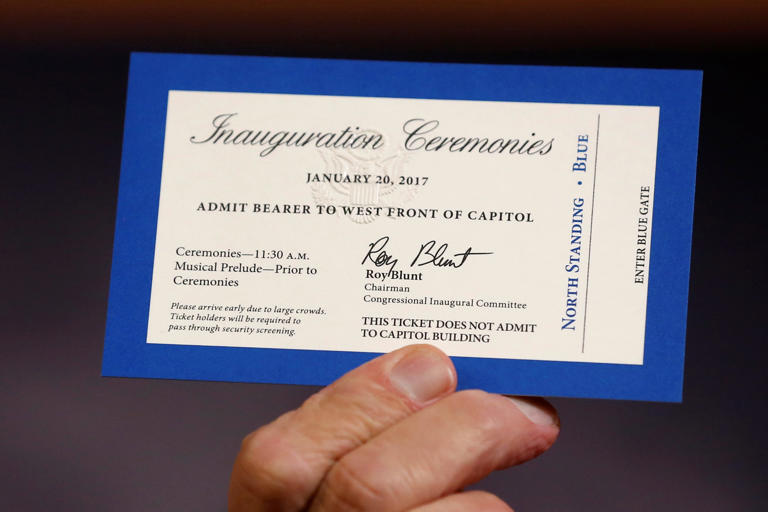 Inauguration Ceremonies
JANUARY 20, 2017
ADMIT BEARER TO WEST FRONT OF CAPITOL
Ceremonies—11:30 A.M.
Musical Prelude—Prior to
Ceremonies
Please arrive early due to large crowds.
Ticket holders will be required to
pass through security screening.
Roy Blunt
Roy Blunt
Chairman
Congressional Inaugural Committee
THIS TICKET DOES NOT ADMIT
TO CAPITOL BUILDING
NORTH STANDING • BLUE
ENTER BLUE GATE